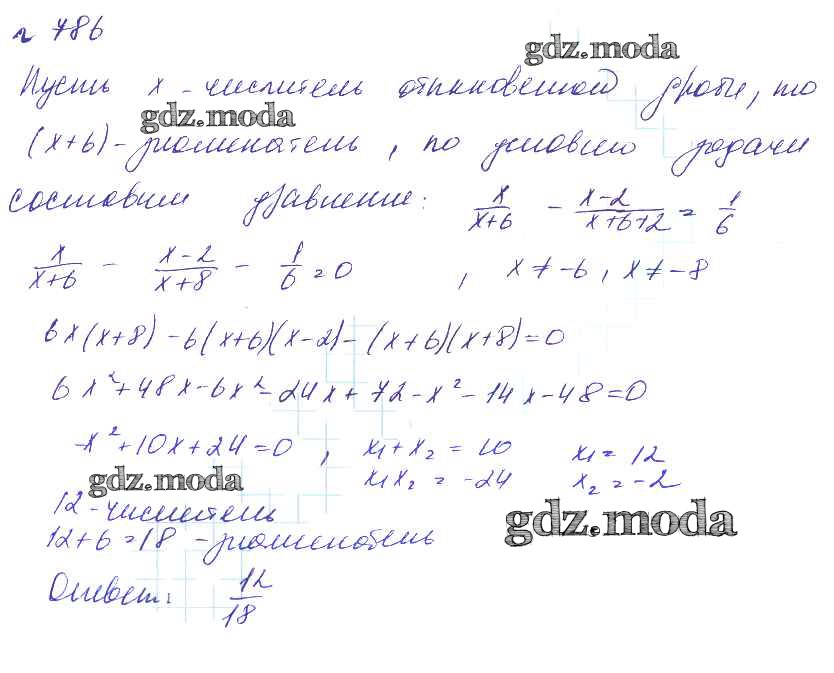 № 786
gdz.moda
Пусть x - числитель обыкновенной дроби, то
gdz.moda
(x+6) - знаменатель, по условию задачи
составим уравнение: x/(x+6) - (x-2)/(x+6+2) = 1/6
x/(x+6) - (x-2)/(x+8) - 1/6 = 0 , x ≠ -6, x ≠ -8
6x(x+8) - 6(x+6)(x-2) - (x+6)(x+8) = 0
6x² + 48x - 6x² - 24x + 72 - x² - 14x - 48 = 0
-x² + 10x + 24 = 0 , x₁ + x₂ = 10 x₁ = 12
gdz.moda x₁x₂ = -24 x₂ = -2
12 - числитель
gdz.moda
12+6=18 - знаменатель
Ответ: 12/18